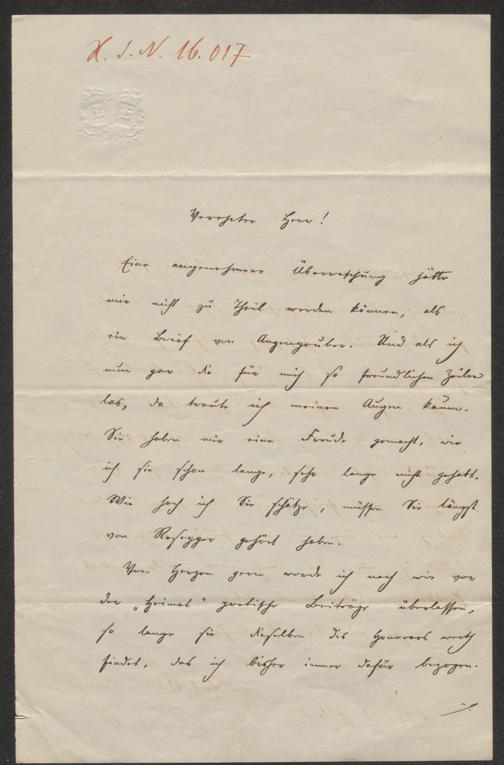 H. I. N. 16.017
Verehrter Herr!
Eine angenehmere Überraschung hätte
mir nicht zu Theil werden können, als
ein Brief von Anzengruber. Und als ich
nun gar die für mich so freundlichen Zeilen
las, da traute ich meinen Augen kaum.
Sie haben mir eine Freude gemacht, wie
ich sie schon lange, sehr lange nicht gehabt.
Wie hoch ich Sie schätze, müssen Sie längst
von Rosegger gehört haben.
Von Herzen gern werde ich nach wie vor
der „Heimat" poetische Beiträge überlassen,
so lange sie dieselben des Honorars werth
findet, das ich bisher immer dafür bezogen.